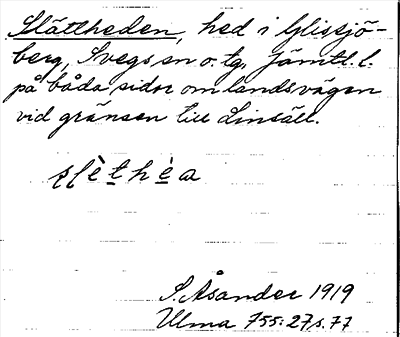 Slättheden, hed i Glissjö-
berg, Svegs sn o. tg, Jämtl. l.
på båda sidor om landsvägen
vid gränsen till Linsäll.
slèthèa
S. Åsander 1919
Ulma 755:27, s. 77